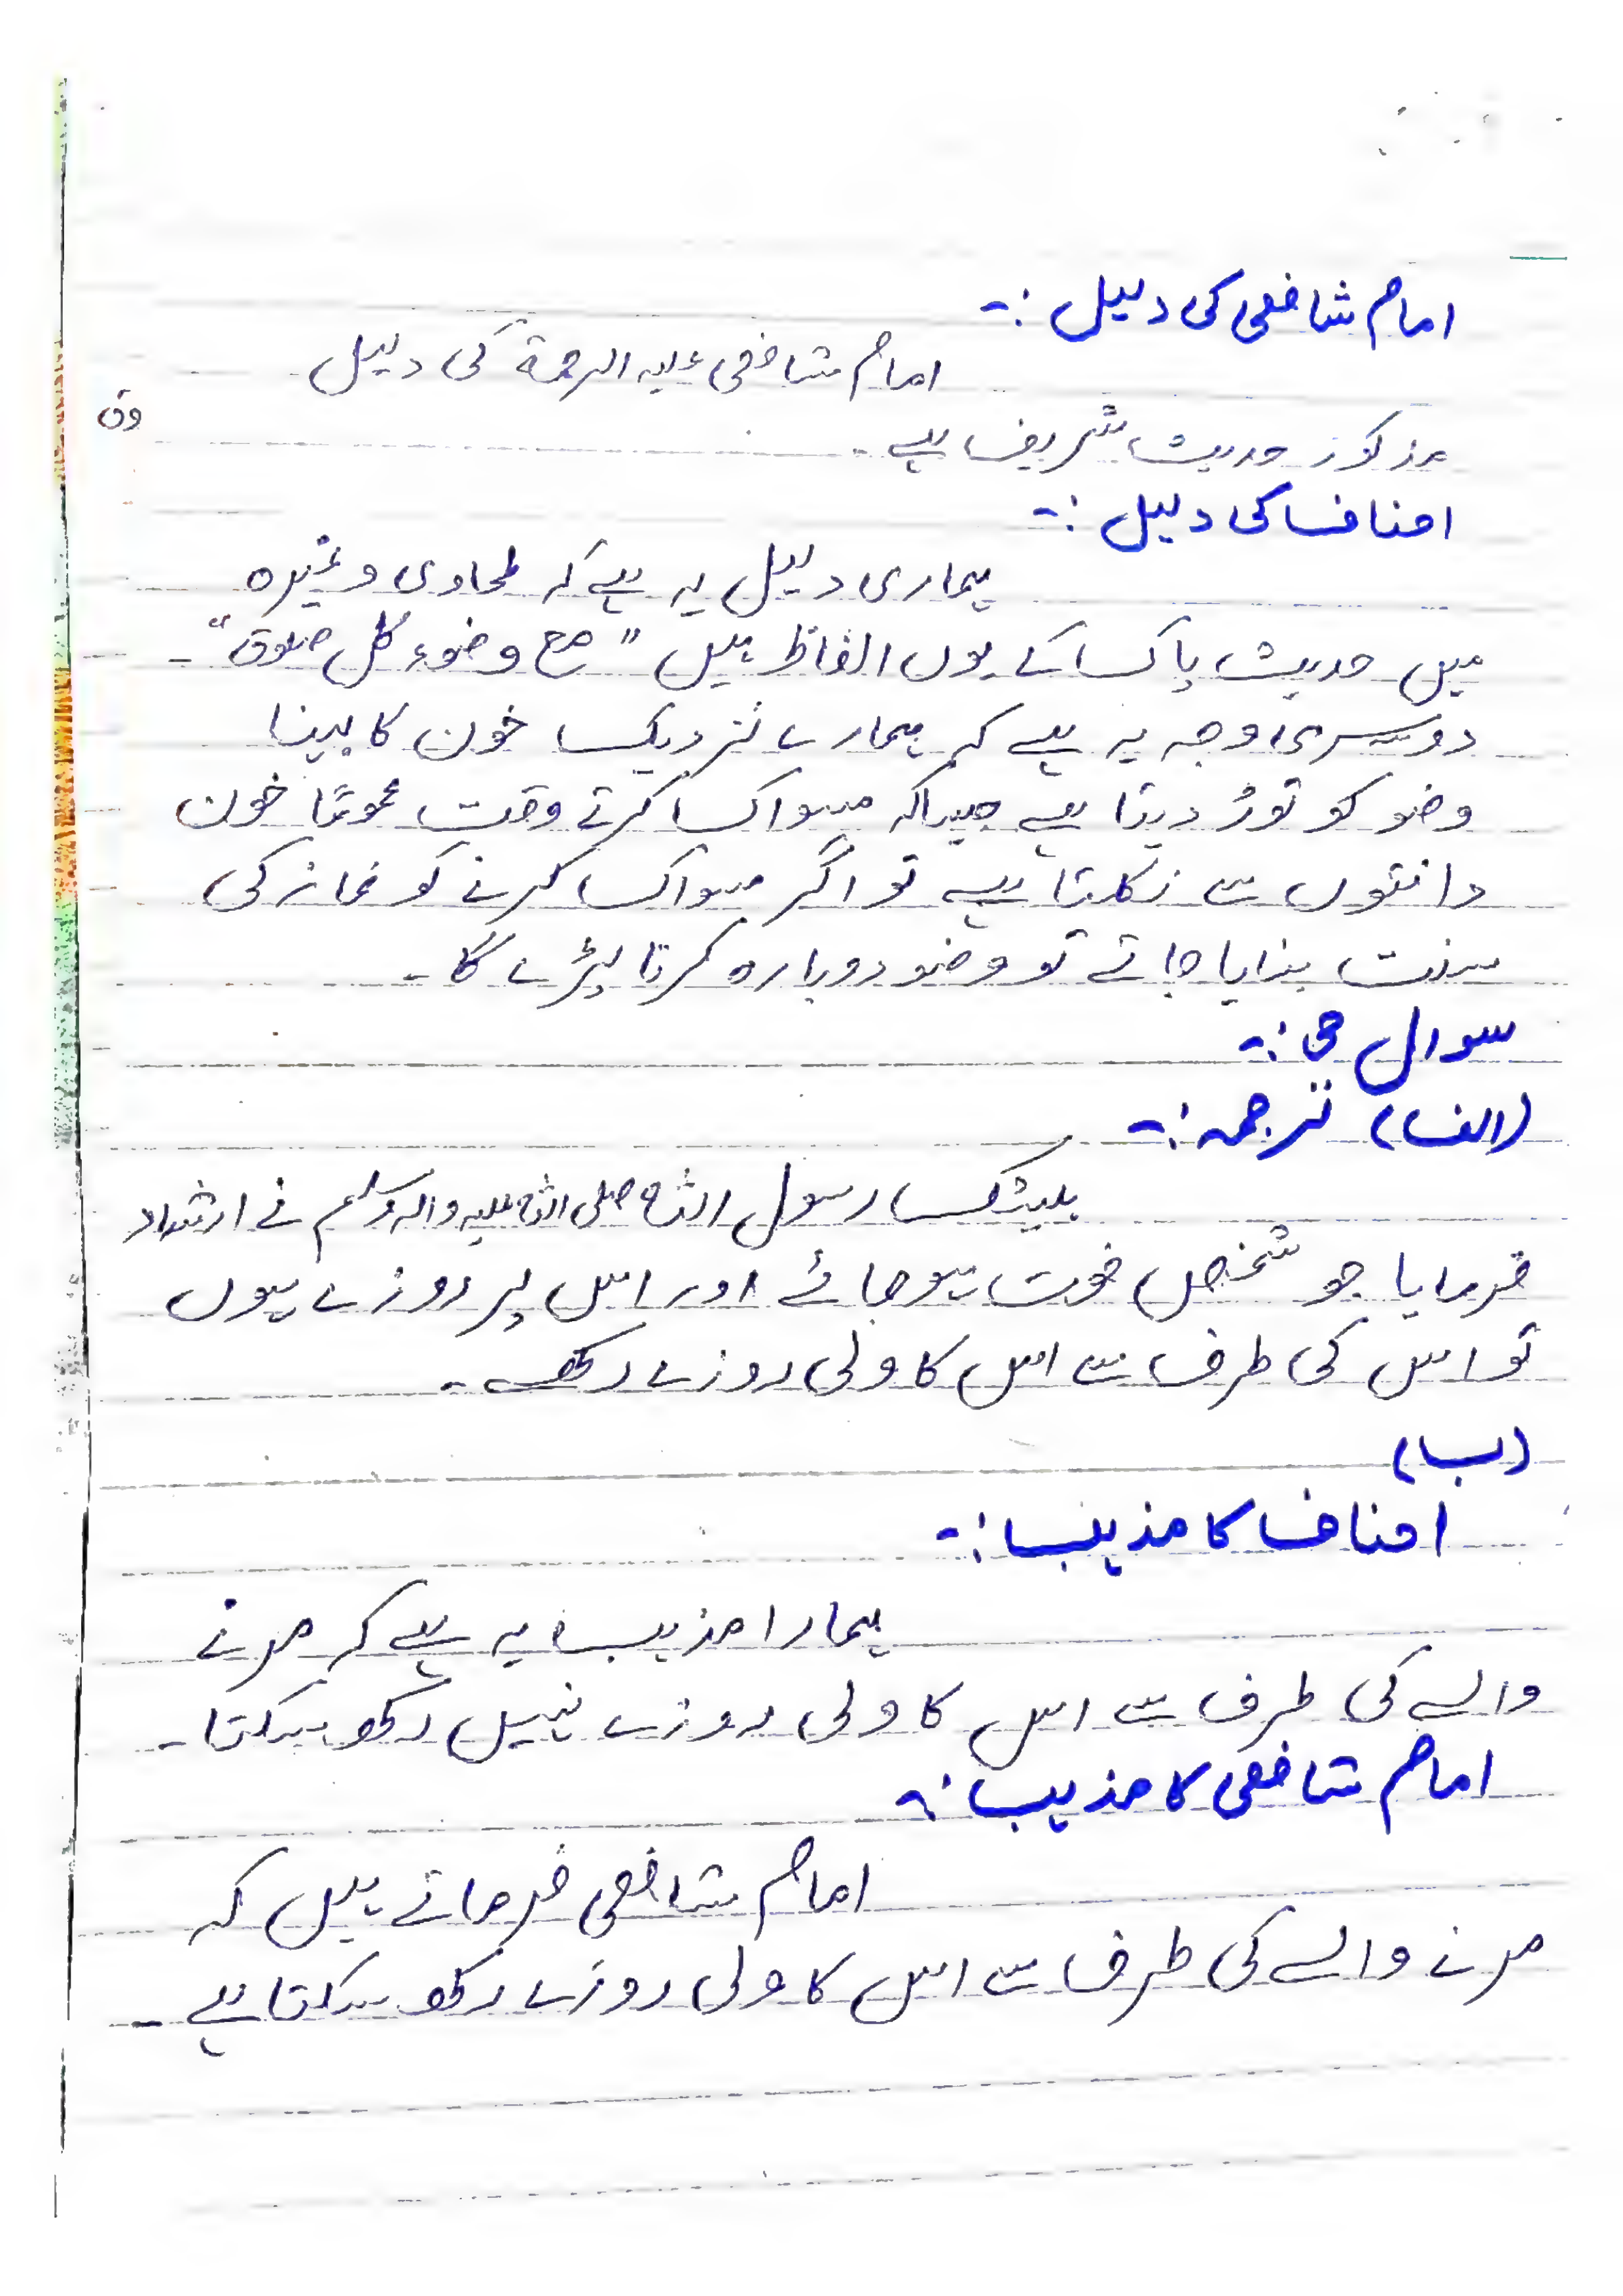 امام شافعی کی دلیل :-
امام شافعی علیہ الرحمۃ کی دلیل
مذکور حدیث شریف ہے -
احناف کی دلیل :-
ہماری دلیل یہ ہے کہ طحاوی وغیرہ
میں حدیث پاک کے یوں الفاظ ہیں "مع وضوء کل صلوۃ" -
دوسری وجہ یہ ہے کہ ہمارے نزدیک خون کا بہنا
وضو کو توڑ دیتا ہے جیساکہ مسواک کرتے وقت عموماً خون
دانتوں سے نکلتا ہے تو اگر مسواک کرنے کو نماز کی
سنت بنایا جائے تو وضو دوبارہ کرنا پڑے گا -
سوال
(الف) ترجمہ :-
بیشک رسول اللہ صلی اللہ علیہ والہ وسلم نے ارشاد
فرمایا جو شخص فوت ہوجائے اور اس پر روزے ہوں
تو اس کی طرف سے اس کا ولی روزے رکھے -
(ب)
احناف کا مذہب :-
ہمارا مذہب یہ ہے کہ مرنے
والے کی طرف سے اس کا ولی روزے نہیں رکھ سکتا -
امام شافعی کا مذہب :-
امام شافعی فرماتے ہیں کہ
مرنے والے کی طرف سے اس کا ولی روزے رکھ سکتا ہے -